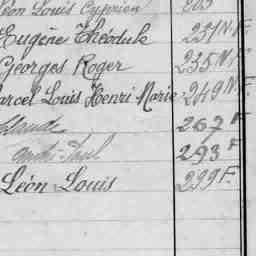 Léon Louis Cyprien 203
Eugène Théodule 231 N.F.
Georges Roger 235 N.F.
arcel Louis Henri Marie 249 N.
Claude 267 F
André-Paul 293 F
Léon Louis 299 F.